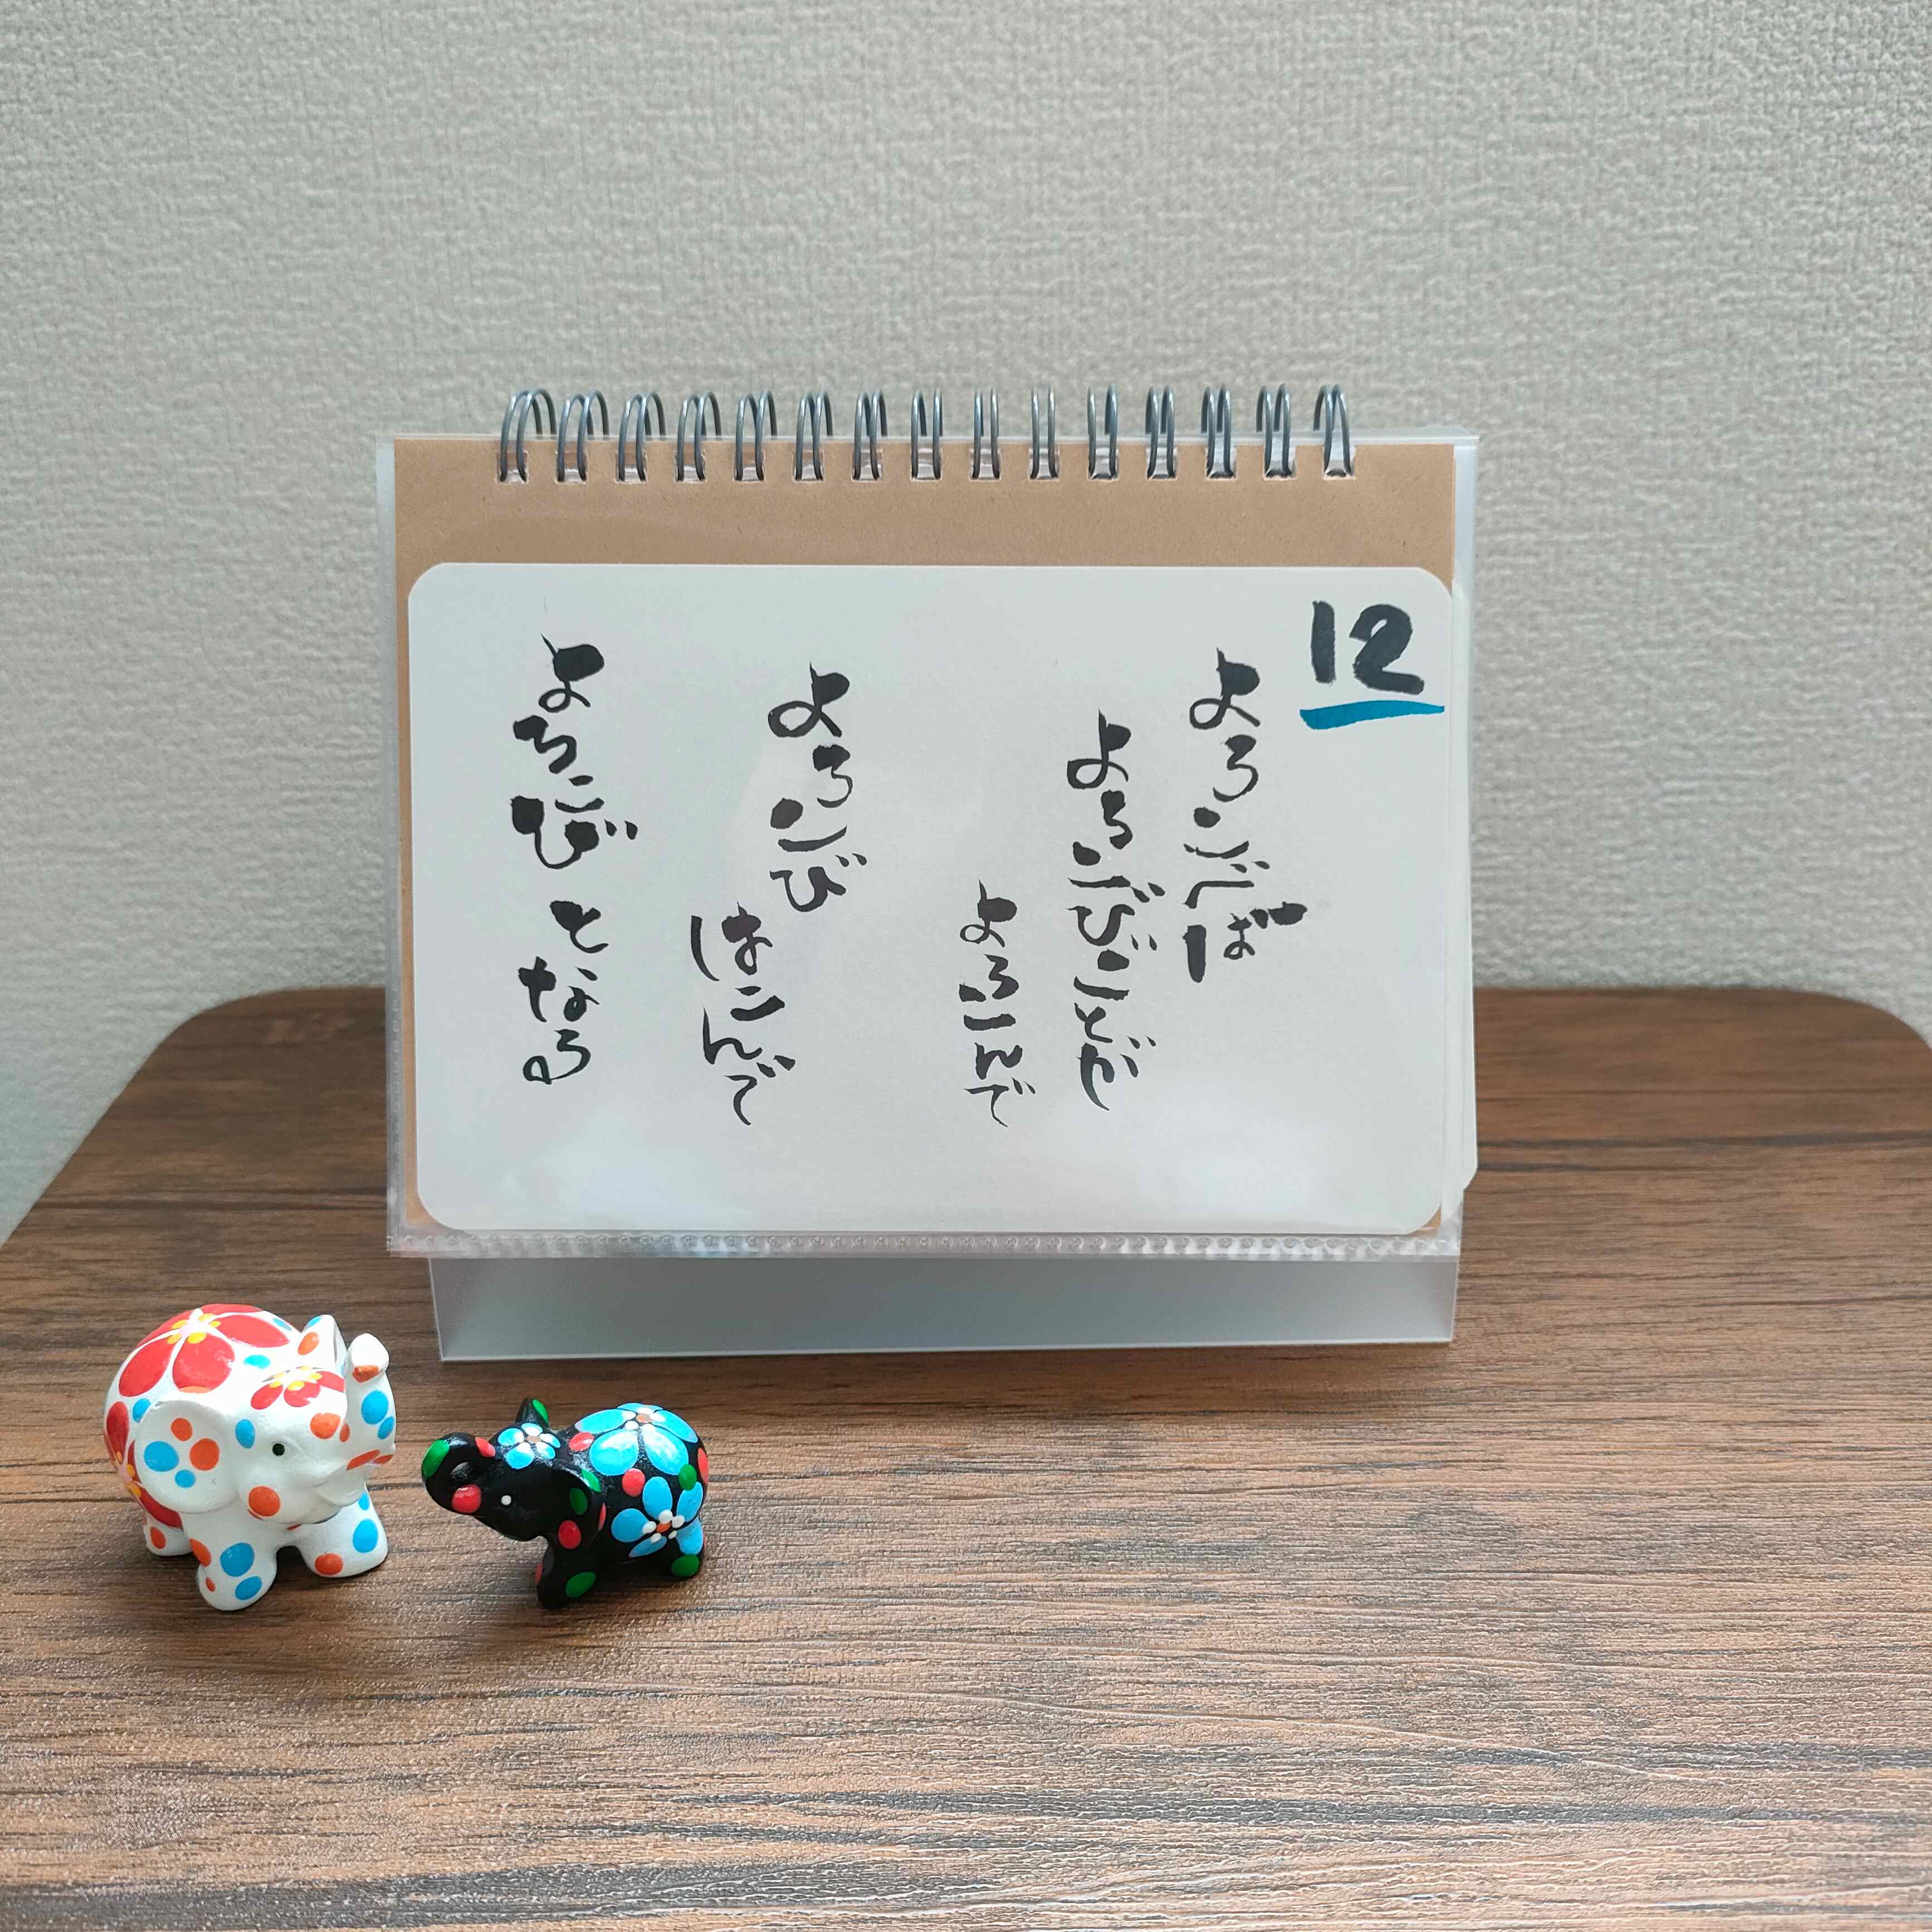 12
よろこべば
よろこびごとが
よろこんで
よろこび
はこんで
よろこびとなる